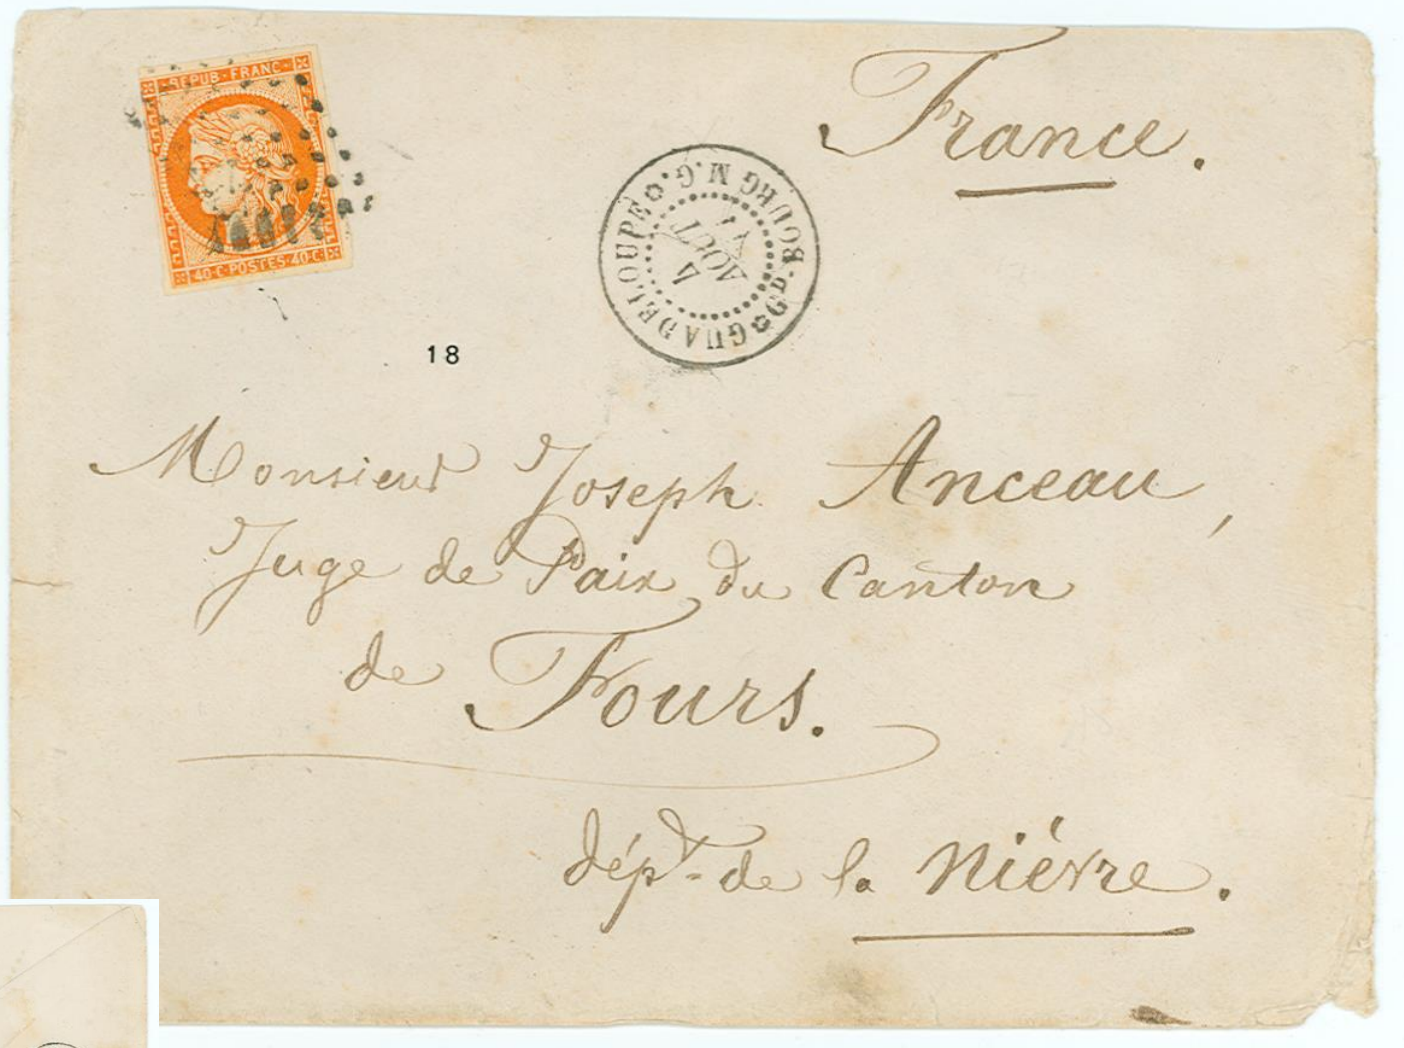 REPUB · FRANC
40 · C · POSTES · 40 · C
France.
GUADELOUPE
Gᴰ. BOURG M.G.
4
AOUT
18
Monsieur Joseph Anceau,
Juge de Paix du Canton
de Fours.
dépt. de la Niévre.